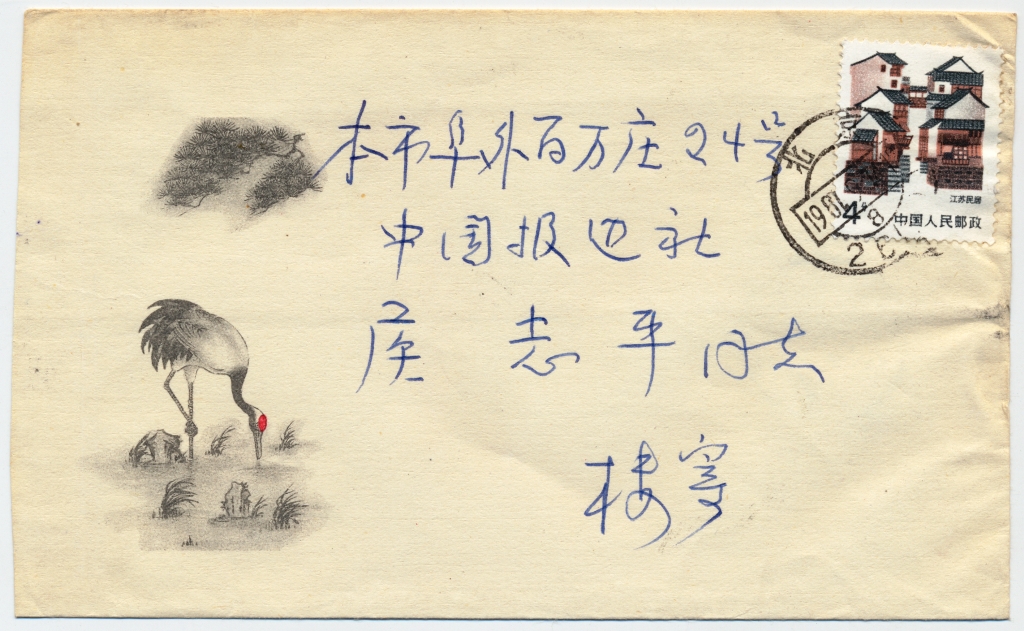 本市阜外百万庄24号
中国报辺社
侯志平同志
楼寄
江苏民居
4
中国人民邮政
北
2